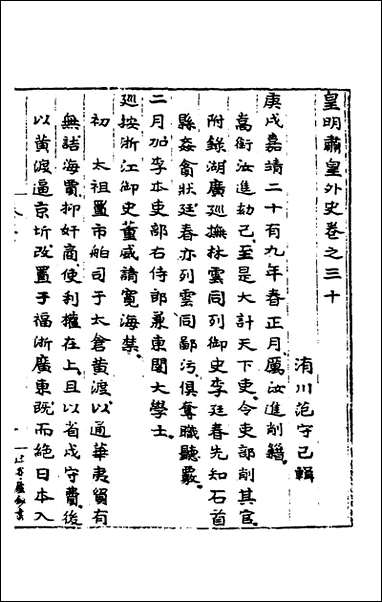 皇明肅皇外史卷之三十
洧川范守己輯
庚戌嘉靖二十有九年春正月厲汝進削籍
嵩銜汝進劾己至是大計天下吏令吏部削其官
附錄湖廣巡撫林雲同列御史李廷春先知石首
縣姦禽狀廷春亦列雲同鄙污俱奪職聽覈
二月加李本吏部右侍郎兼東閣大學士
巡按浙江御史董威請寬海禁
初太祖置市舶司于太倉黃渡以通華夷貿有
無詰海賈抑奸商使利權在上且以省戍守費後
以黃渡逼京圻改置于福浙廣東既而絕日本入